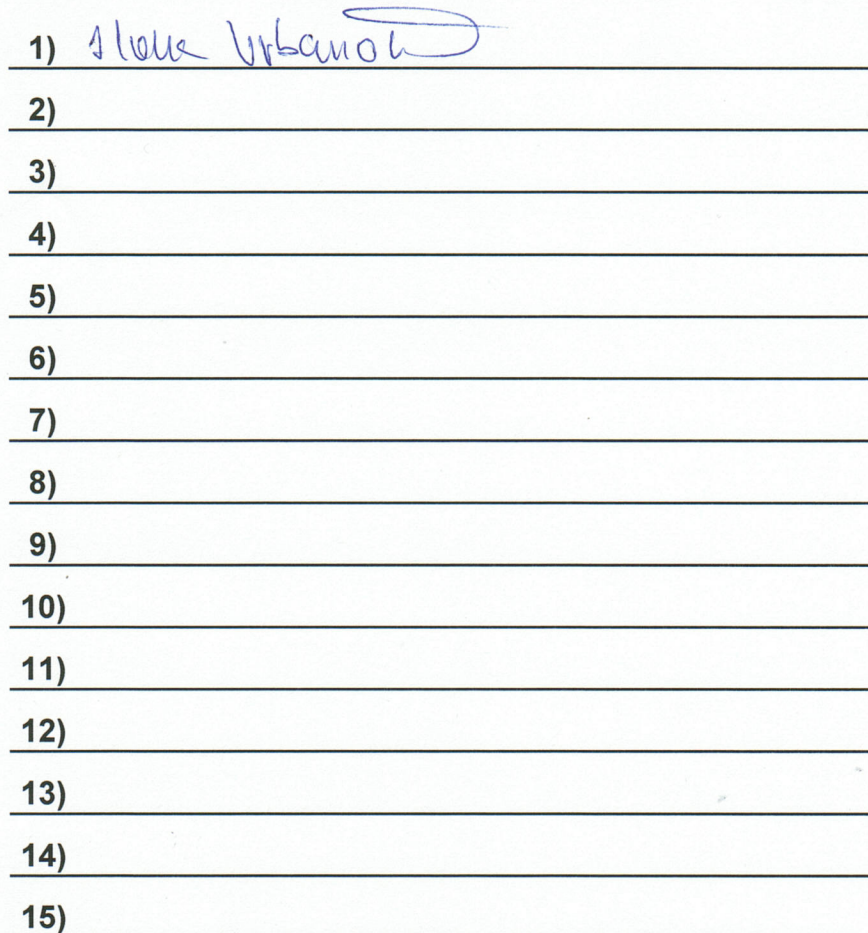 1) Ilona Urbano
2)
3)
4)
5)
6)
7)
8)
9)
10)
11)
12)
13)
14)
15)